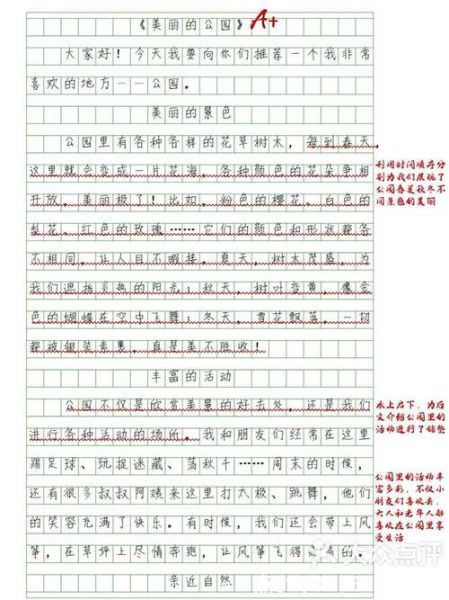 《美丽的公园》
A+
大家好！今天我要向你们推荐一个我非常
喜欢的地方——公园。
美丽的景色
公园里有各种各样的花草树木，每到春天，
这里就会变成一片花海，各种颜色的花朵争相
开放，美丽极了！比如，粉色的樱花、白色的
梨花、红色的玫瑰……它们的颜色和形状都各
不相同，让人目不暇接。夏天，树木茂盛，为
我们遮挡炎热的阳光；秋天，树叶变黄，像金
色的蝴蝶在空中飞舞；冬天，雪花飘落，一切
都被银装素裹，真是美不胜收！
利用时间顺序分
别为我们展现了
公园春夏秋冬不
同景色的美丽
丰富的活动
公园不仅是欣赏美景的好去处，还是我们
进行各种活动的场所。我和朋友们经常在这里
踢足球、玩捉迷藏、荡秋千……周末的时候，
还有很多叔叔阿姨来这里打太极、跳舞，他们
的笑容充满了快乐。有时候，我们还会带上风
筝，在草坪上尽情奔跑，让风筝飞得高高的。
承上启下，为后
文介绍公园里的
活动进行了铺垫
公园里的活动丰
富多彩，不仅小
朋友们喜欢去，
大人和老年人都
喜欢在公园里享
受生活
亲近自然
大众点评